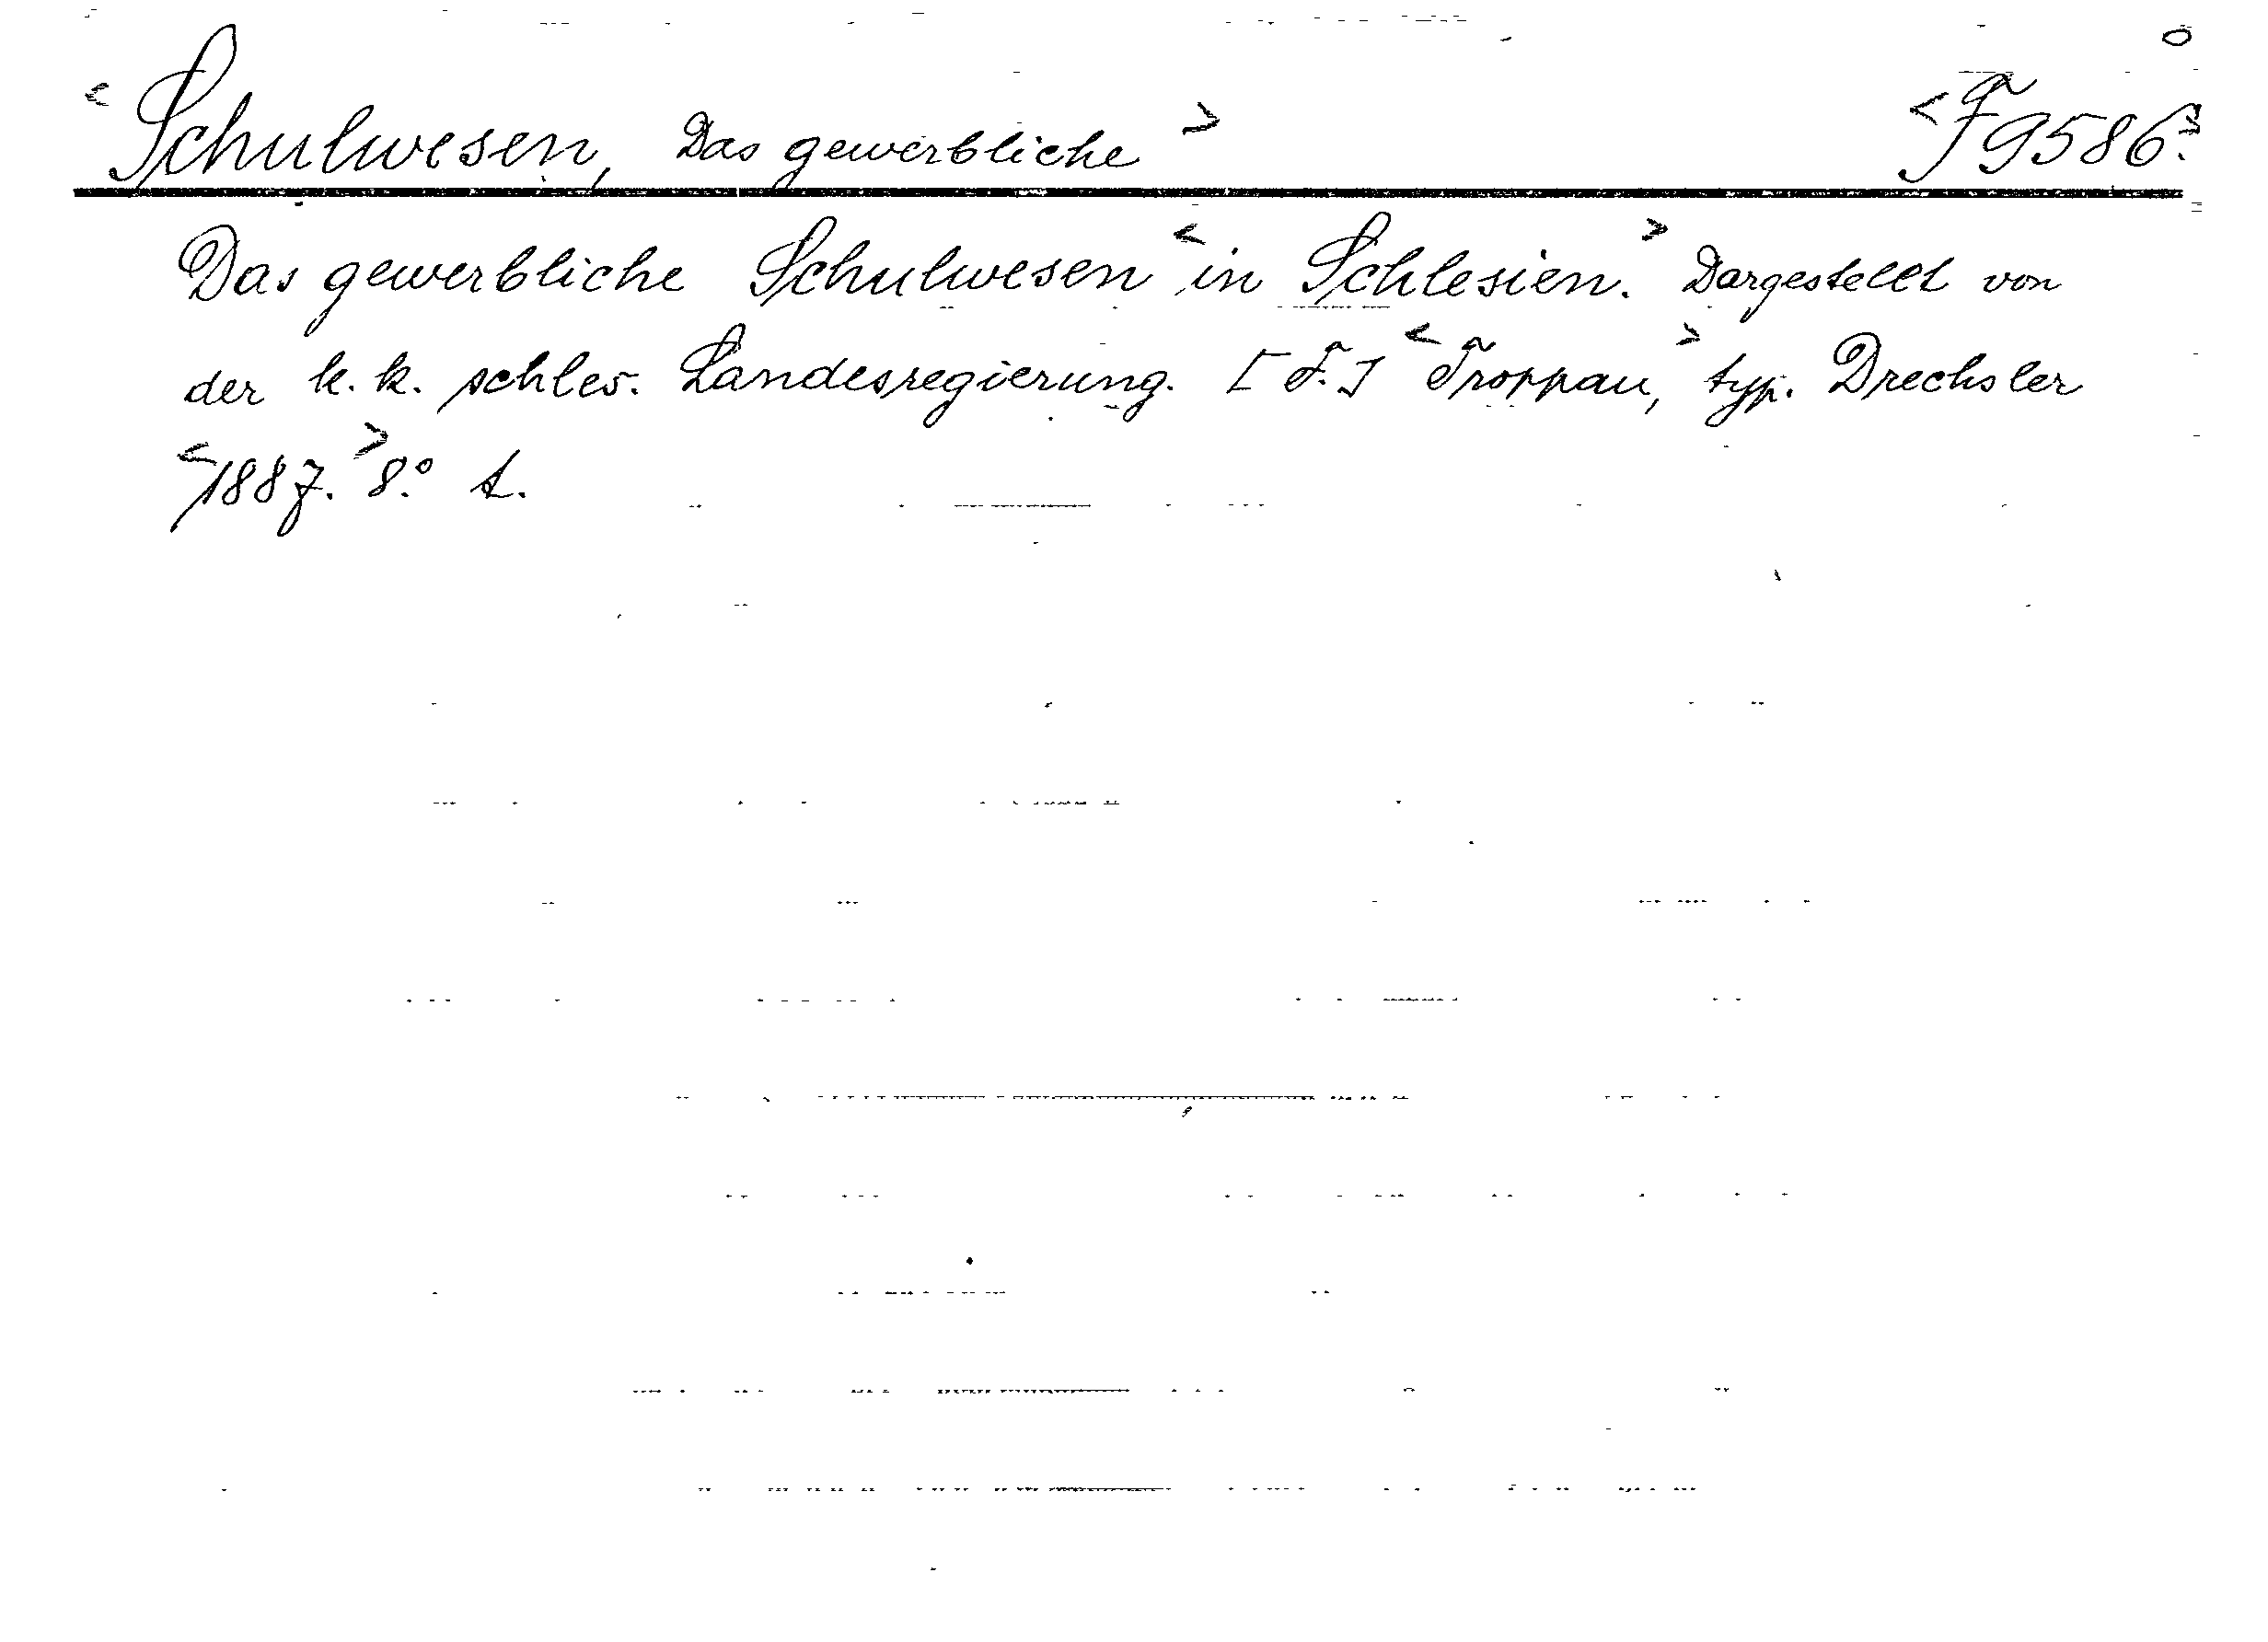 <Schulwesen, Das gewerbliche> <F 9586.>
Das gewerbliche Schulwesen <in Schlesien.> Dargestellt von
der k. k. schles. Landesregierung. [F.] <Troppau,> typ. Drechsler
<1887.> 8.°